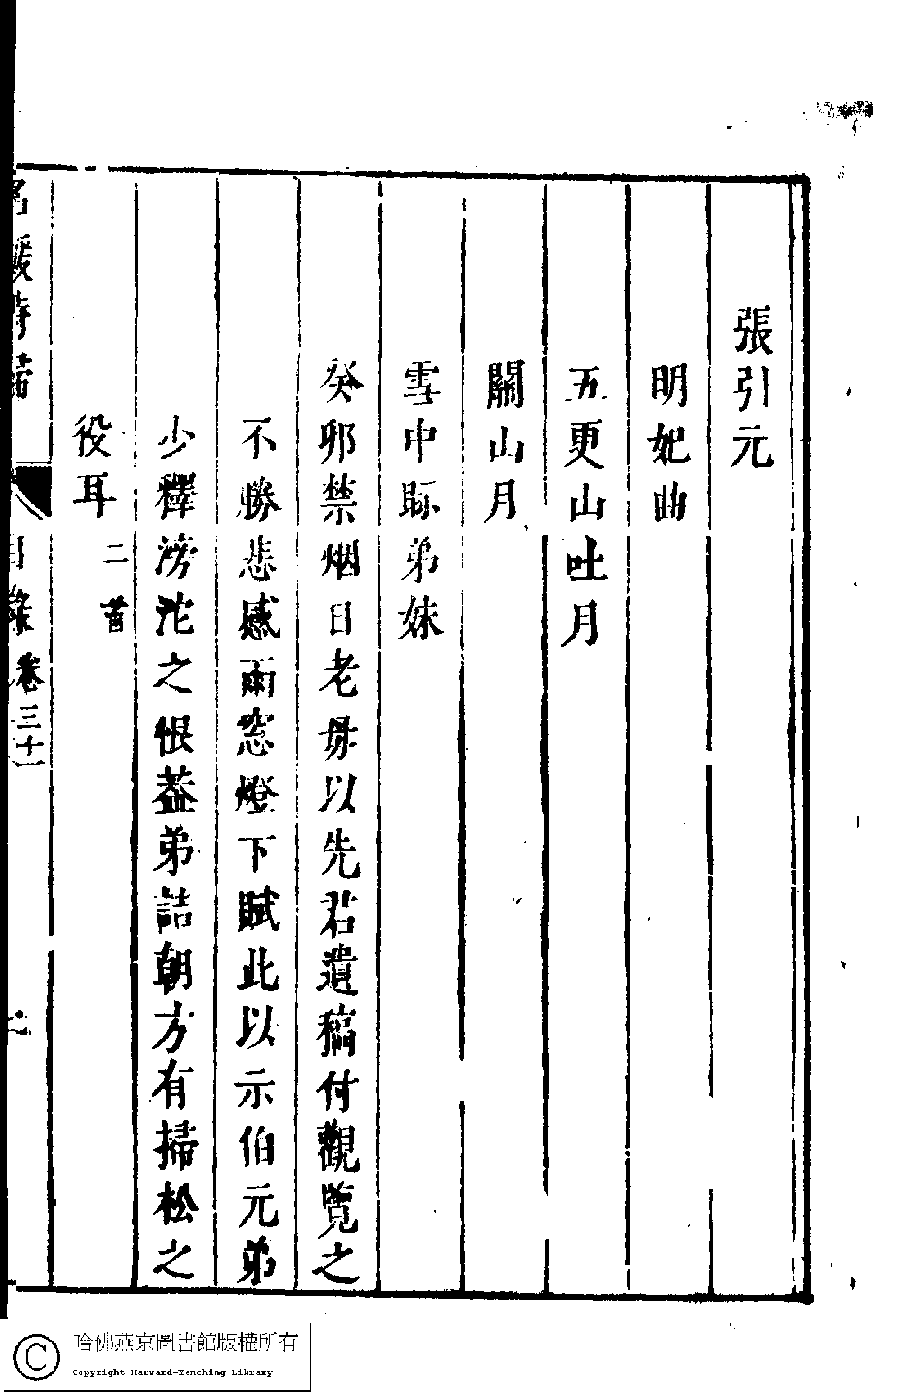 張引元
明妃曲
五更山吐月
關山月
雪中眎弟妹
癸卯禁烟日老母以先君遺稿付觀覽之
不勝悲感雨窓燈下賦此以示伯元弟
少釋滂沱之恨葢弟詰朝方有掃松之
役耳 二首
名媛詩歸 目錄卷三十一
哈佛燕京圖書館版權所有
Copyright Harvard-Yenching Library